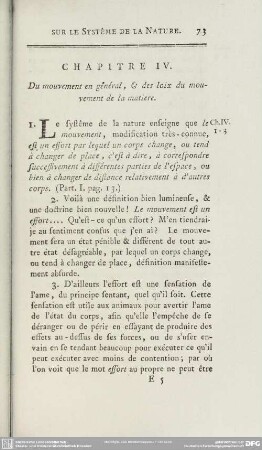 SUR LE SYSTÊME DE LA NATURE. 73
CHAPITRE IV.
Du mouvement en général, & des loix du mou-
vement de la matiere.
1. Le systême de la nature enseigne que le Ch.IV.
mouvement, modification très-connue, 1-3
est un effort par lequel un corps change, ou tend
à changer de place, c'est à dire, à correspondre
successivement à différentes parties de l'espace, ou
bien à changer de distance relativement à d'autres
corps. (Part. I. pag. 13.)
2. Voilà une définition bien lumineuse, &
une doctrine bien nouvelle! Le mouvement est un
effort.... Qu'est-ce qu'un effort? M'en tiendrai-
je au sentiment confus que j'en ai? Le mouve-
ment sera un état pénible & différent de tout au-
tre état désagréable, par lequel un corps change,
ou tend à changer de place, définition manifeste-
ment absurde.
3. D'ailleurs l'effort est une sensation de
l'ame, du principe sentant, quel qu'il soit. Cette
sensation est utile aux animaux pour avertir l'ame
de l'état du corps, afin qu'elle l'empêche de se
déranger ou de périr en essayant de produire des
effets au-dessus de ses forces, ou de s'user en-
vain en se tendant beaucoup pour exécuter ce qu'il
peut exécuter avec moins de contention; par où
l'on voit que le mot effort au propre ne peut être
E 5